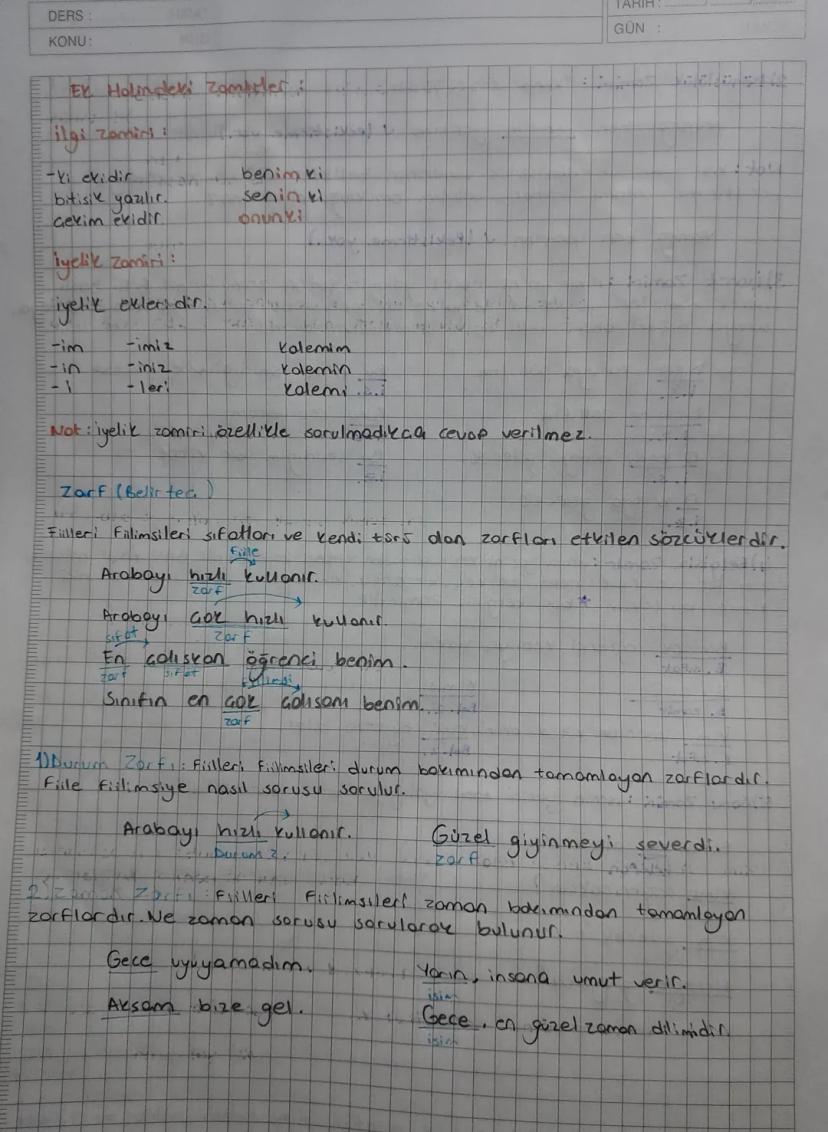 DERS :
KONU :
TARİH :
GÜN :
Ek Halindeki Zamirler :
ilgi zamiri :
-ki ekidir benimki
bitişik yazılır. seninki
çekim ekidir onunki
iyelik zamiri :
iyelik ekleridir.
-im -imiz kalemim
-in -iniz kalemin
-i -leri kalemi
Not: iyelik zamiri özellikle sorulmadıkça cevap verilmez.
Zarf (Belirteç)
Fiilleri Fiilimsileri sıfatları ve kendi türü dan zarfları etkilen sözcüklerdir.
fiile
Arabayı hızlı kullanır.
zarf
Arabayı çok hızlı kullanır.
sıfat zarf
En çalışkan öğrenci benim.
zarf sıfat
Sınıfın en çok çalışanı benim.
zarf
1) Durum Zarfı: Fiilleri, fiilimsileri durum bakımından tamamlayan zarflardır.
Fiile fiilimsiye nasıl sorusu sorulur.
Arabayı hızlı kullanır. Güzel giyinmeyi severdi.
Durum z. zarf
2) Zarfı: Fiilleri Fiilimsileri zaman bakımından tamamlayan
zarflardır. Ne zaman sorusu sorularak bulunur.
Gece uyuyamadım. Yarın, insana umut verir.
isim
Akşam bize gel. Gece, en güzel zaman dilimidir.
isim